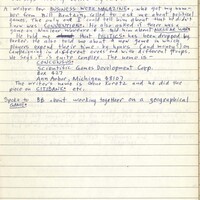 A writer for BUSINESS WEEK MAGAZINE, who got my name-
ber from Bill Bantning called to ask me about political
games. The only one I could tell him about that he didn't
know was CONVENTIONS. He also asked if there was a
game on Nuclear Warfare & I told him about NUCLEAR WAR.
He told me that POLITICS has been dropped by
Parker. He also told me about a new game in which
players expend their time by hours (and money) on
campaigning in different areas and with different groups.
He says it is quite complex. The name is:
CONSENSUS
Scientific Games Development Corp.
Box 427
Ann Arbor, Michigan 48107
The writer's name is Gene Koretz and he did the
piece on CITADEL, etc.
Spoke to BB about working together on a geographical
game.